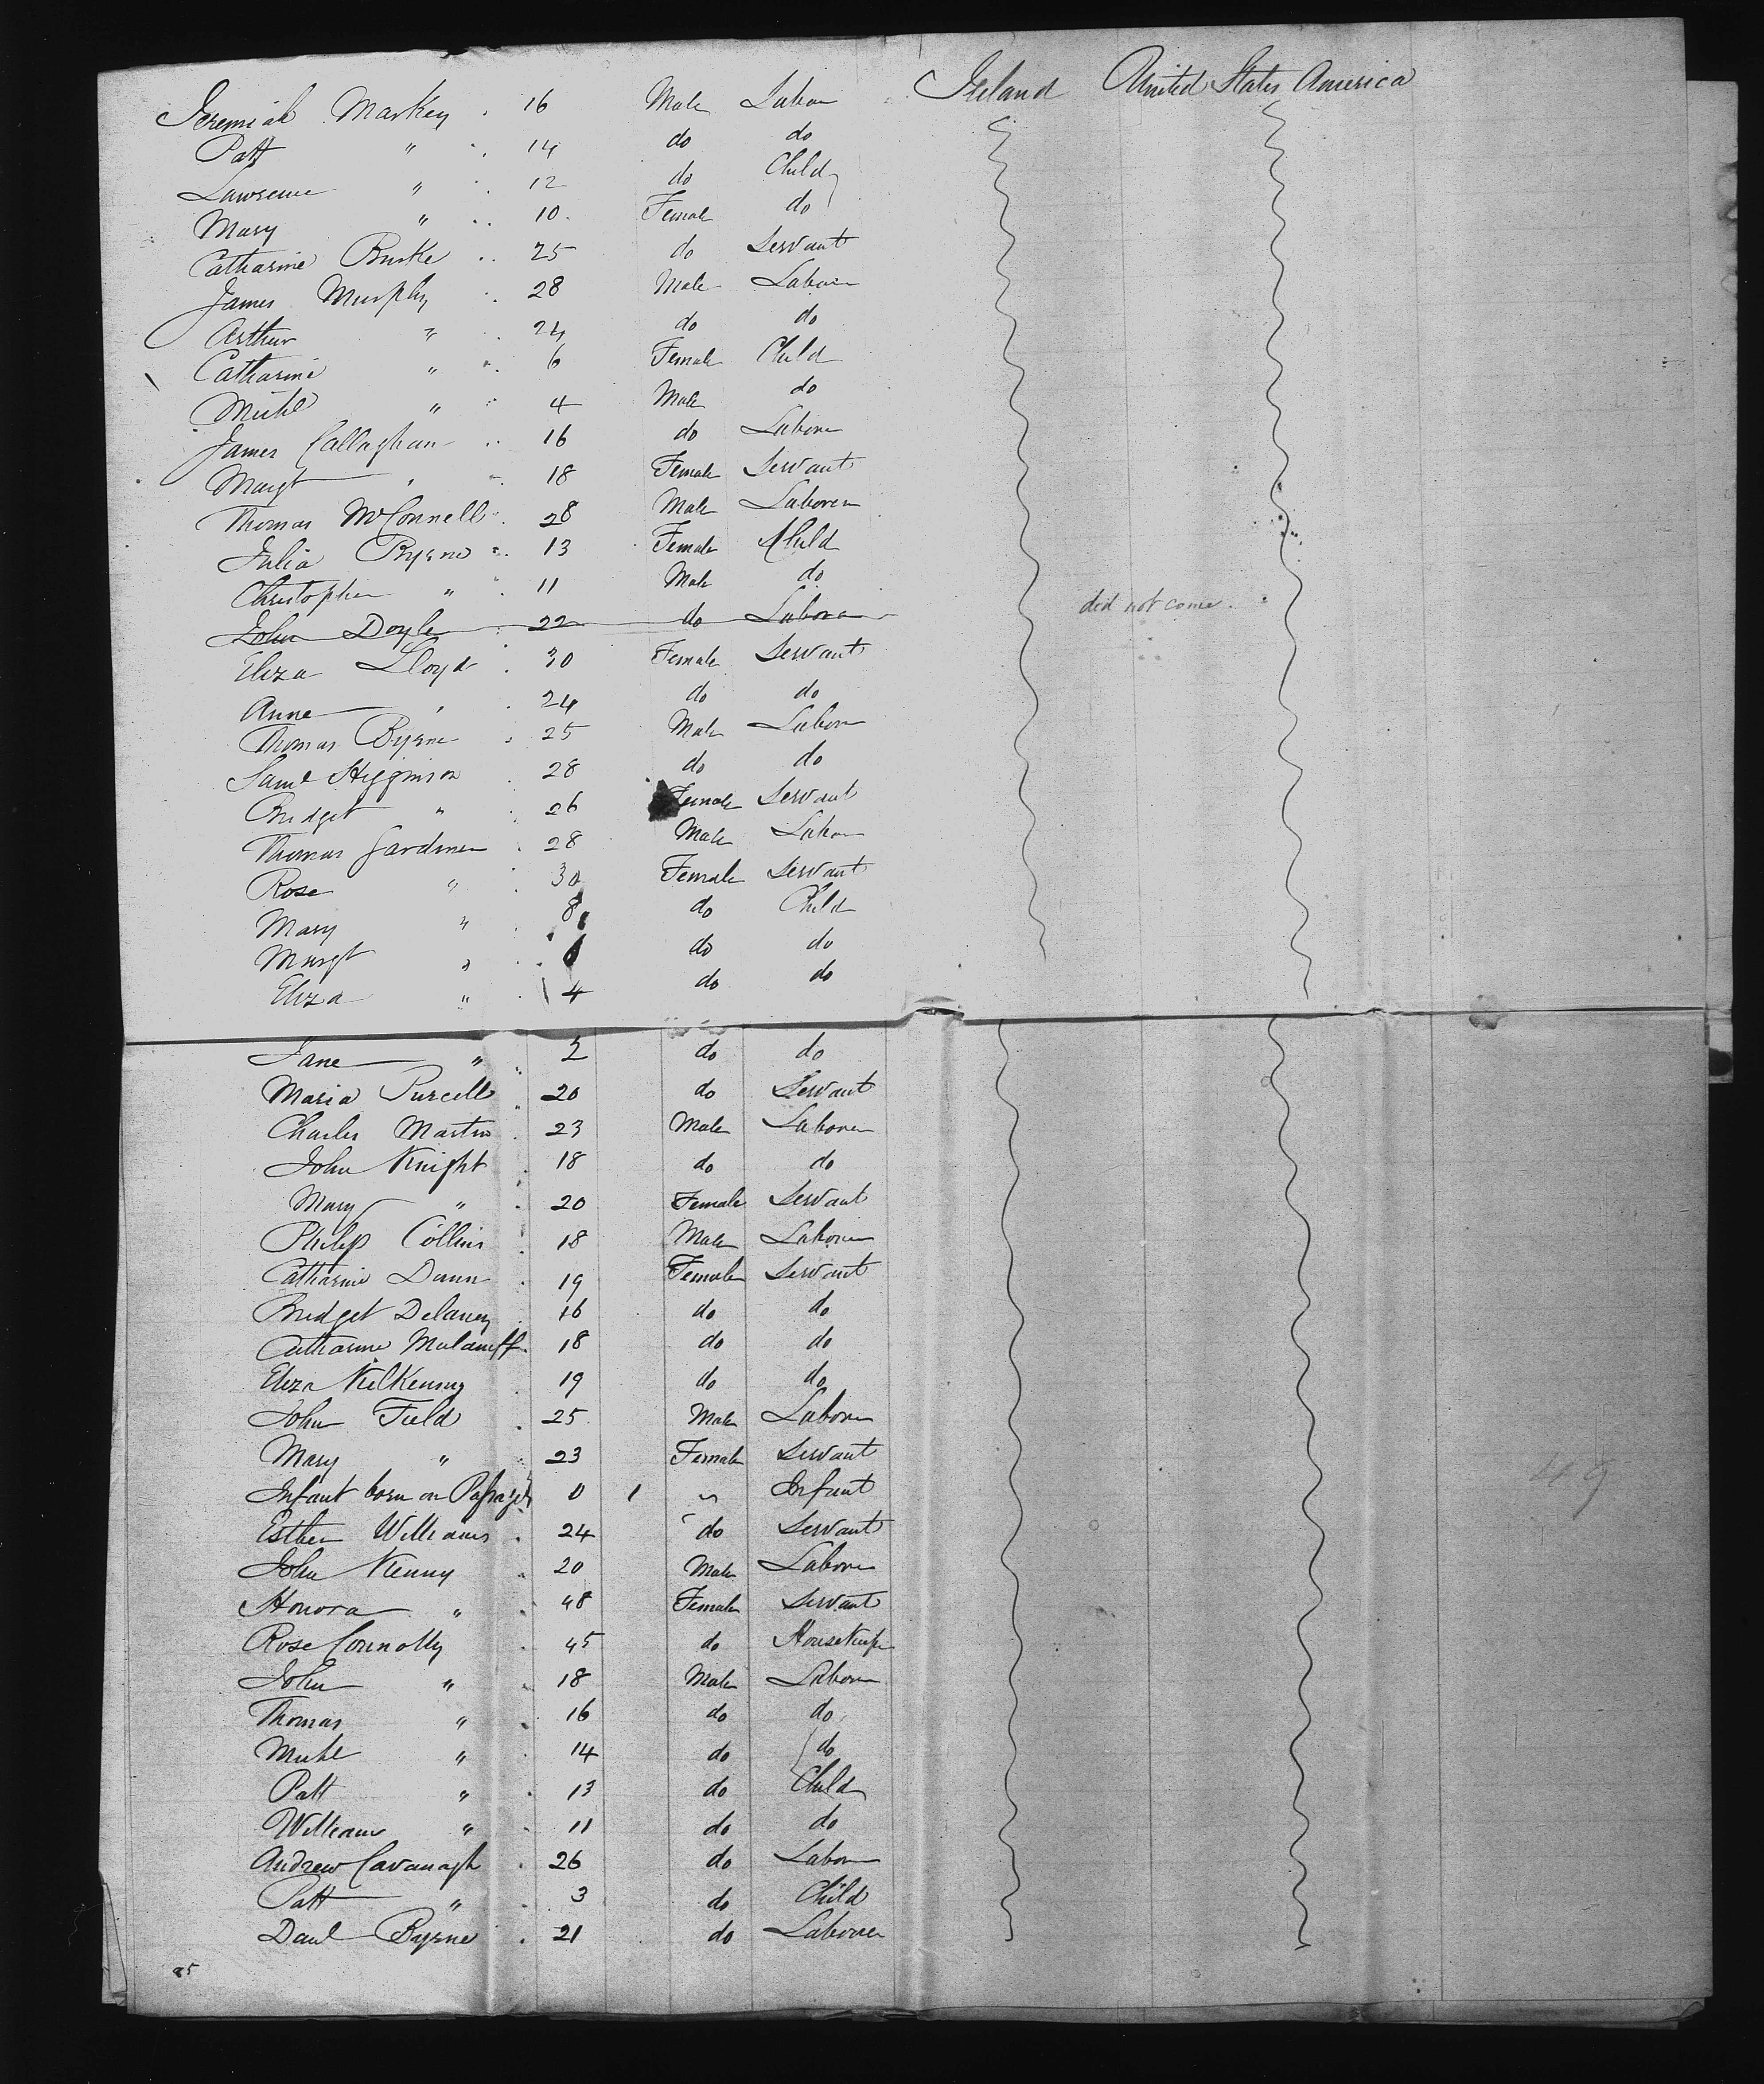 Jeremiah Markey 16 Male Labor Ireland United States America
Patt " 14 do do
Lawrence " 12 do Child
Mary " 10 Female do
Catharine Burke 25 do Servant
James Murphy 28 Male Labour
Arthur " 24 do do
Catharine " 6 Female Child
Michl " 4 Male do
James Callaghan 16 do Laborer
Margt " 18 Female Servant
Thomas McConnell 28 Male Laborer
Julia Byrne 13 Female Child
Christopher " 11 Male do
John Doyle 22 do Laborer did not come.
Eliza Lloyd 30 Female Servant
Anne " 24 do do
Thomas Byrne 25 Male Labor
Saml Higginson 28 do do
Bridget " 26 Female Servant
Thomas Gardiner 28 Male Labor
Rose " 30 Female Servant
Mary " 8 do Child
Margt " do do
Eliza " 4 do do
Jane " 2 do do
Maria Purcell 20 do Servant
Charles Martin 23 Male Laborer
John Knight 18 do do
Mary " 20 Female Servant
Philip Collins 18 Male Laborer
Catharine Dunn 19 Female Servant
Bridget Delaney 16 do do
Catharine 18 do do
Eliza Kilkenny 19 do do
John Field 25 Male Laborer
Mary " 23 Female Servant
Infant born on Passage 0 1 " Infant
Esther Williams 24 do Servant
John Kenny 20 Male Laborer
Honora " 48 Female Servant
Rose Connolly 45 do Housekeeper
John " 18 Male Laborer
Thomas " 16 do do
Michl " 14 do do
Patt " 13 do Child
William " 11 do do
Andrew Cavanagh 26 do Labor
Patt " 3 do Child
Danl Byrne 21 do Laborer